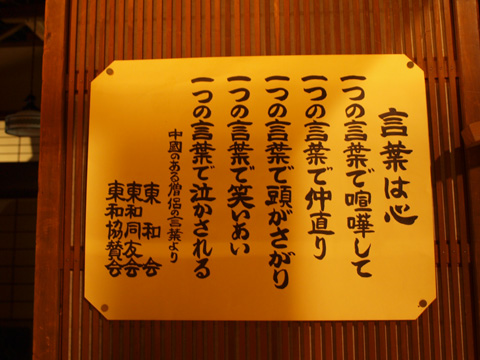 言葉は心
一つの言葉で喧嘩して
一つの言葉で仲直り
一つの言葉で頭がさがり
一つの言葉で笑いあい
一つの言葉で泣かされる
中國のある僧侶の言葉より
東和会
東和同友会
東和協賛会